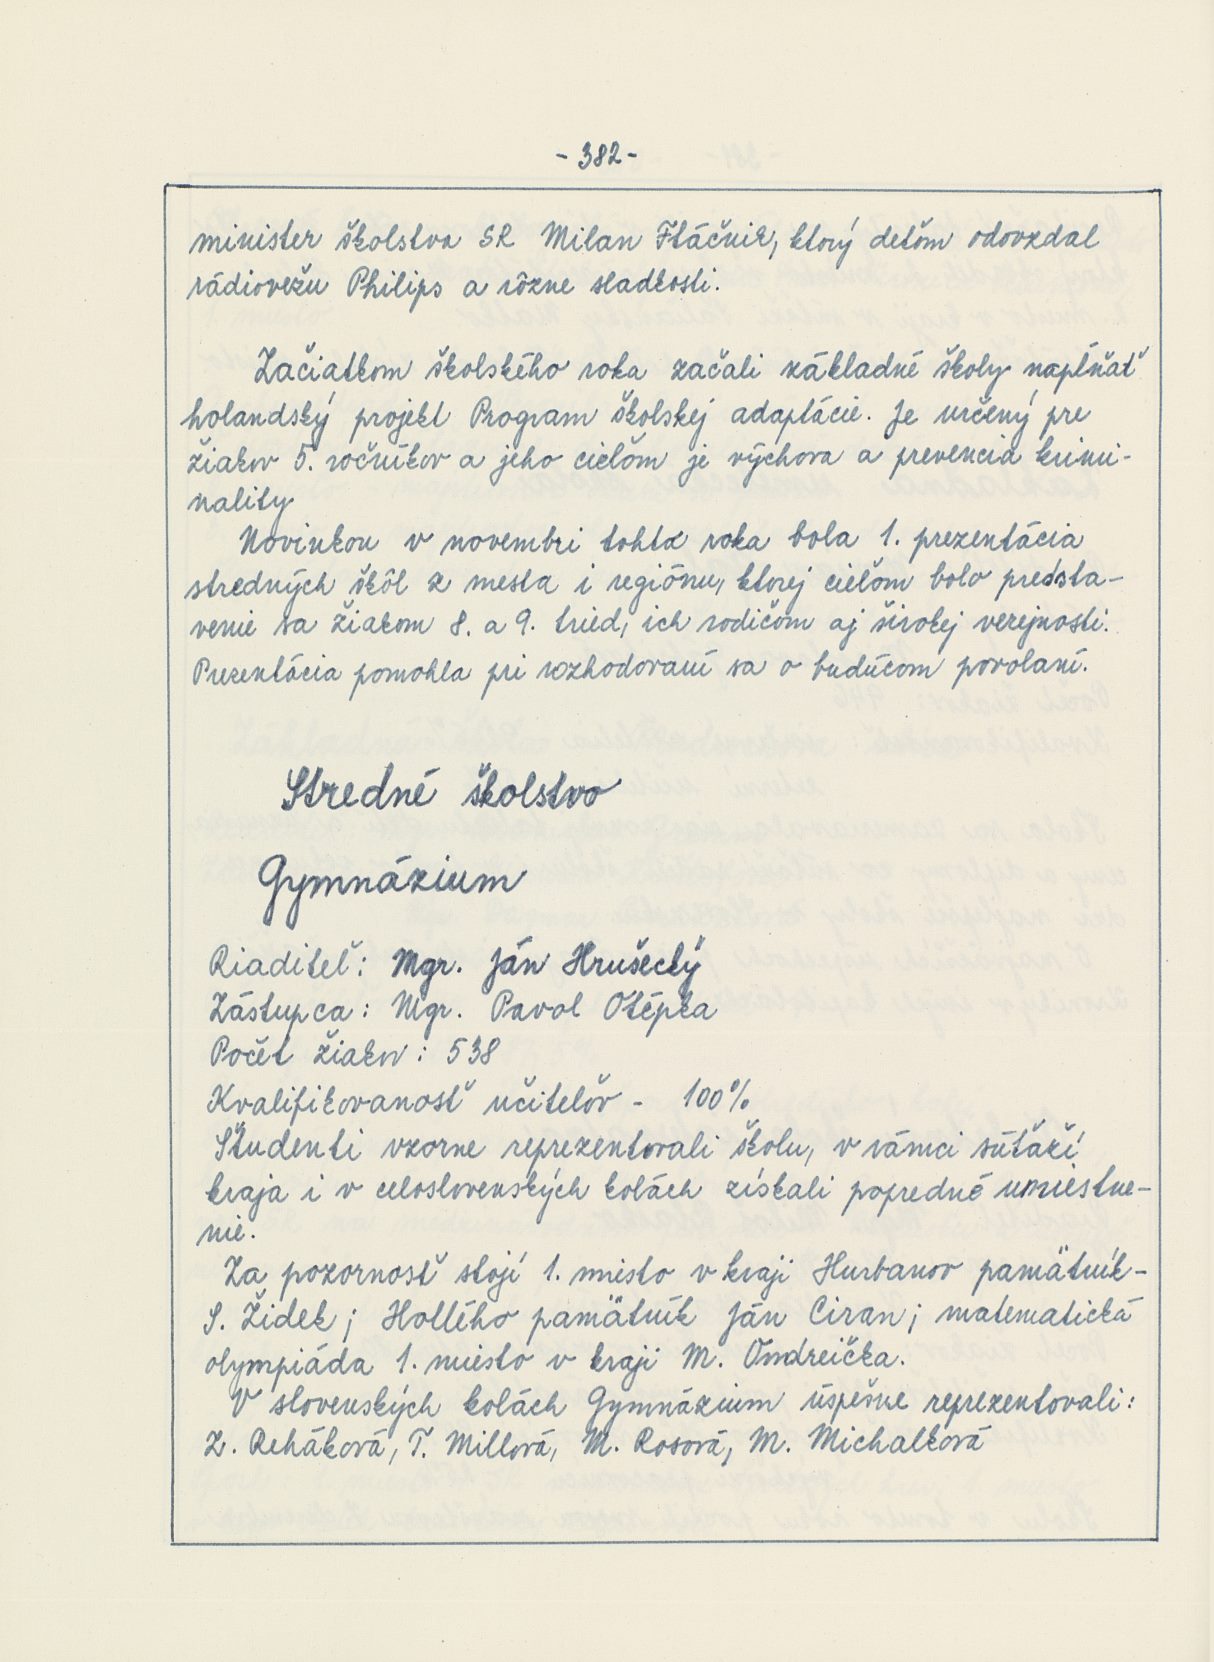 - 382 -
minister školstva SR Milan Ftáčnik, ktorý deťom odovzdal
rádiovežu Philips a rôzne sladkosti.
Začiatkom školského roka začali základné školy napĺňať
holandský projekt Program školskej adaptácie. Je určený pre
žiakov 5. ročníkov a jeho cieľom je výchova a prevencia krimi-
nality
Novinkou v novembri tohto roka bola 1. prezentácia
stredných škôl z mesta i regiónu, ktorej cieľom bolo predsta-
venie sa žiakom 8. a 9. tried, ich rodičom aj širokej verejnosti.
Prezentácia pomohla pri rozhodovaní sa o budúcom povolaní.
Stredné školstvo
Gymnázium
Riaditeľ: Mgr. Ján Hrušecký
Zástupca: Mgr. Pavol Otépka
Počet žiakov: 538
Kvalifikovanosť učiteľov - 100%
Študenti vzorne reprezentovali školu, v rámci súťaží
kraja i v celoslovenských kolách získali popredné umiestne-
nie.
Za pozornosť stojí 1. miesto v kraji Hurbanov pamätník -
S. Židek; Hollého pamätník Ján Ciran; matematická
olympiáda 1. miesto v kraji M. Ondreička.
V slovenských kolách Gymnázium úspešne reprezentovali:
Z. Reháková, T. Millová, M. Rosová, M. Michalková